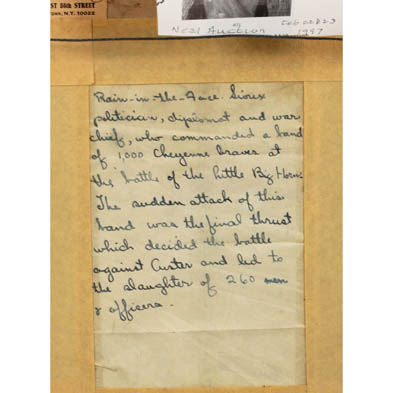 ST 56th STREET
ORK, N.Y. 10022
Neal Auction
1997
Rain-in-the-Face. Sioux
politician, diplomat and war
chief, who commanded a band
of 1,000 Cheyenne braves at
the battle of the Little Big Horn.
The sudden attack of this
band was the final thrust
which decided the battle
against Custer and led to
the slaughter of 260 men
& officers.